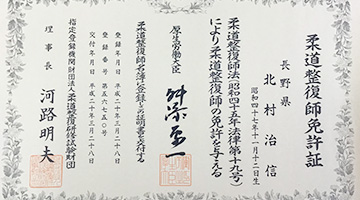 柔道整復師免許証
長野県
北村治信
昭和四十七年十一月十二日生
柔道整復師法(昭和四十五年法律第十九号)
により柔道整復師の免許を与える
厚生労働大臣
舛添要一
登録年月日 平成二十年三月二十八日
登録番号 第五六七五〇号
柔道整復師名簿に登録し、この証明書を交付する
交付年月日 平成二十年三月二十八日
指定登録機関財団法人柔道整復研修試験財団
理事長 河路明夫